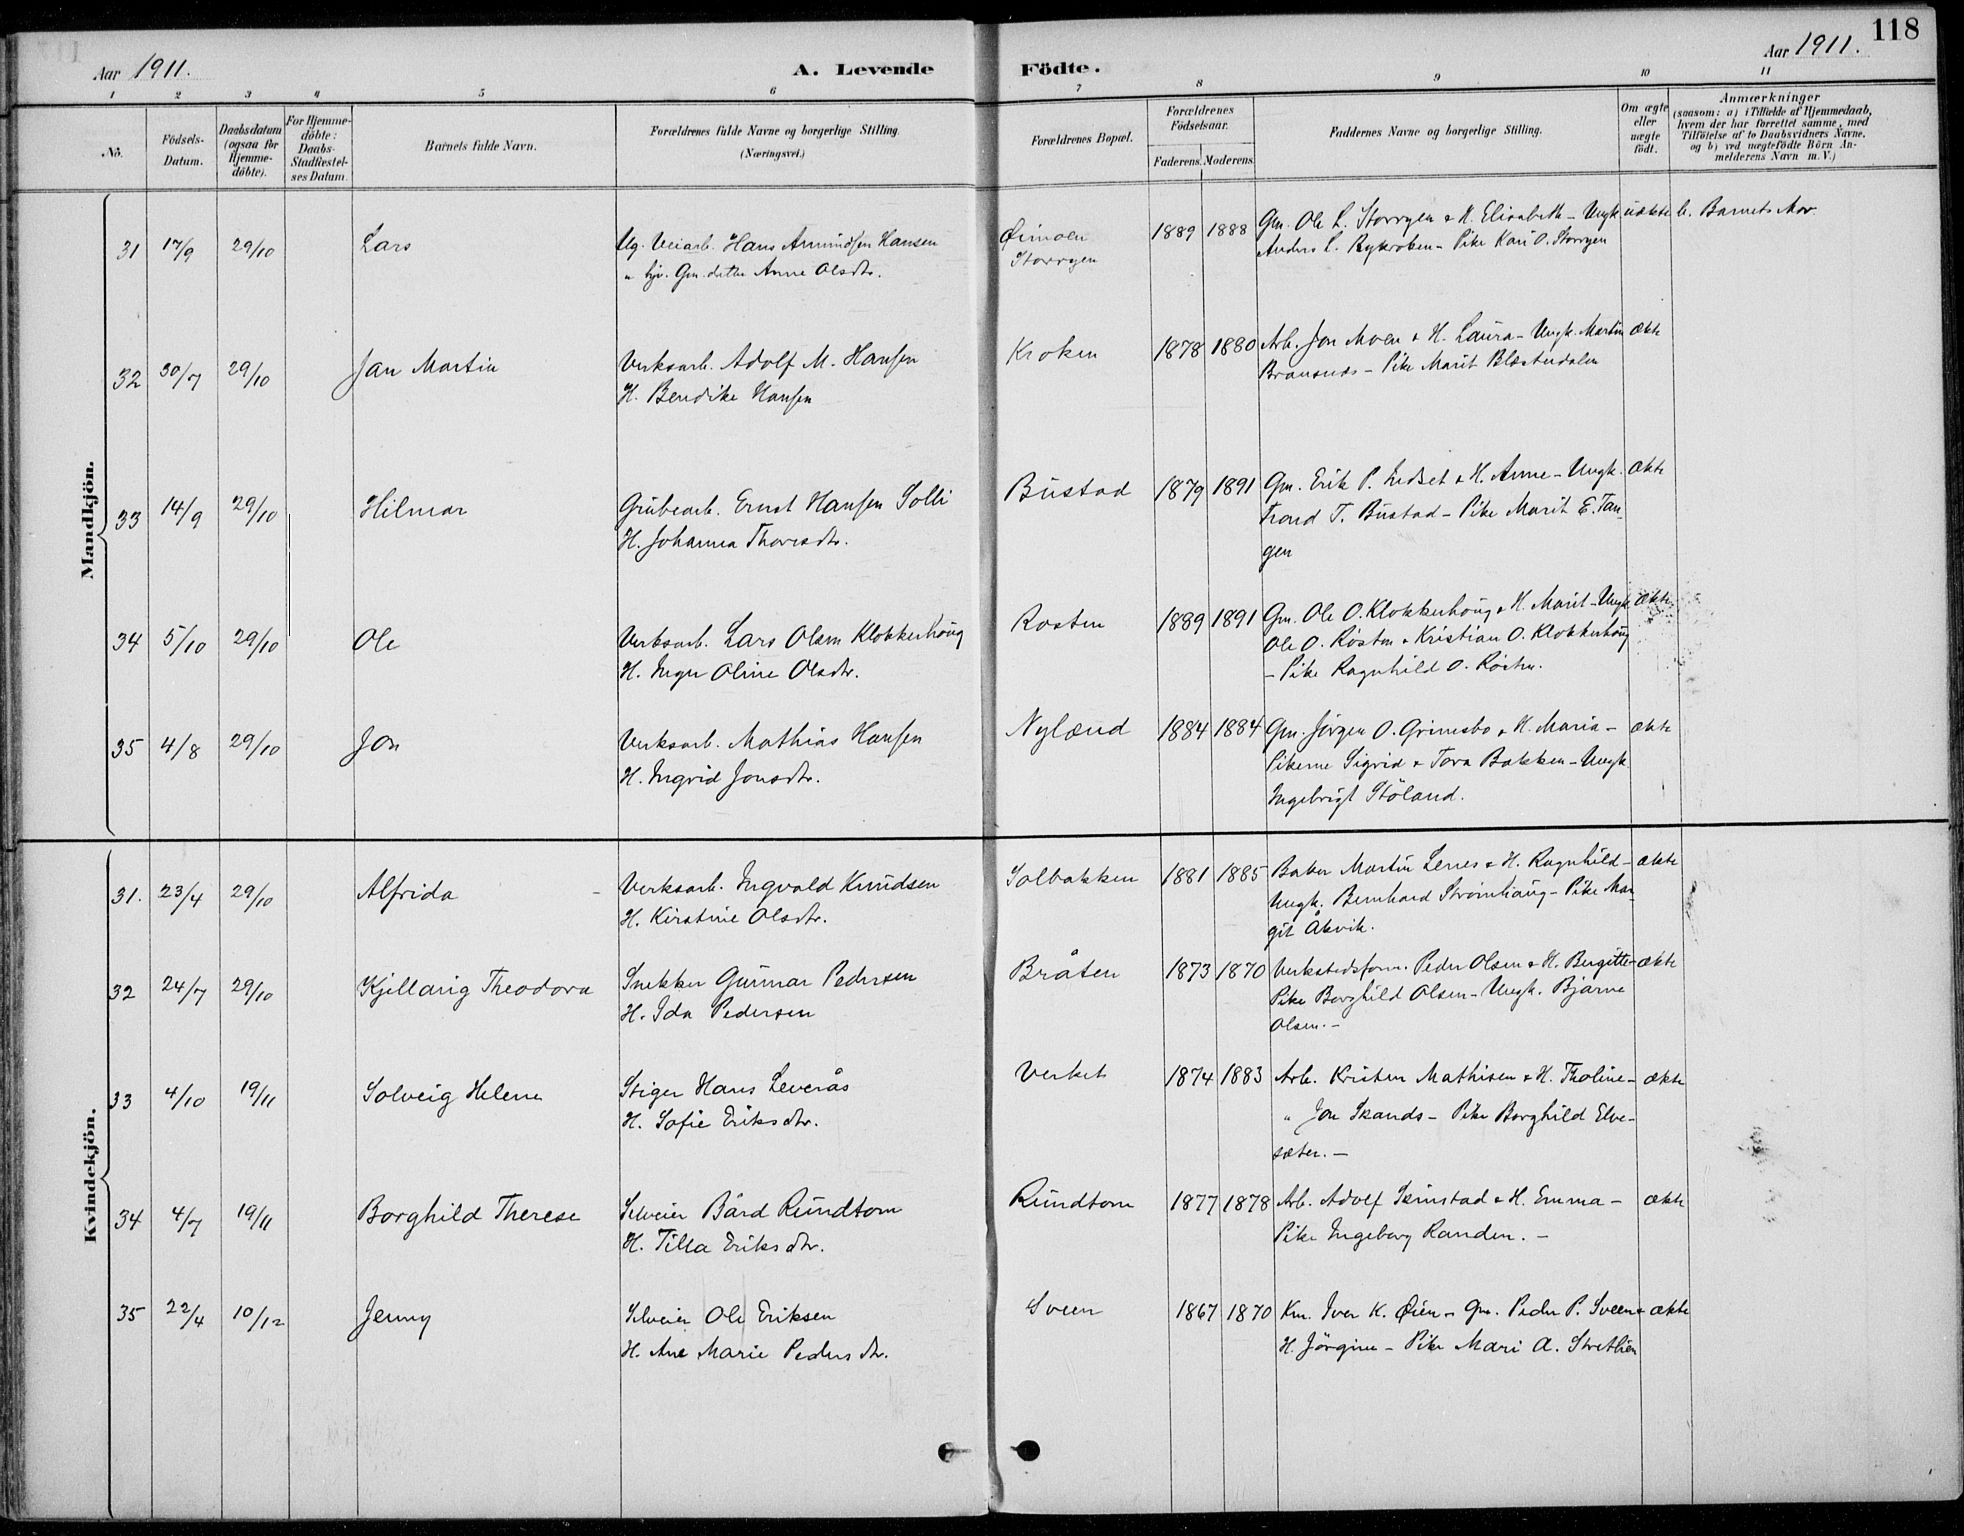 118
Aar 1911.
A. Levende
Födte.
Aar 1911.
1 2 3 4 5 6 7 8 9 10 11
No.
Födsels-Datum.
Daabsdatum (ogsaa for Hjemme-döbte).
For Hjemme-döbte: Daabs-Stadfæstel-ses Datum.
Barnets fulde Navn.
Forældrenes fulde Navne og borgerlige Stilling. (Næringsvei.)
Forældrenes Bopæl.
Forældrenes Födselsaar.
Faderens. Moderens.
Faddernes Navne og borgerlige Stilling.
Om ægte eller uægte födt.
Anmærkninger
(saasom: a) i Tilfælde af Hjemmedaab,
hvem der har forrettet samme, med
Tilföielse af to Daabsvidners Navne,
og b) ved uægtefödte Börn An-
melderens Navn m. V.)
Mandkjön.
31 17/9 29/10 Lars Ug. Veiarb. Hans Amundsen Hansen Øimoen 1889 1888 Gm. Ole L. Storrygen & H. Elisabeth - Ungk. uækte b. Barnets Mor
" Gm. datter Anne Olsdtr. Storrygen Anders L. - Pike Kari O. Storrygen
32 30/7 29/10 Jan Martin Verksarb. Adolf M. Hansen Kroken 1878 1880 Arb. Jon Moen & H. Laura - Ungk. Martin ækte
H. Bendike Hansen - Pike Marit Blæsterdalen
33 14/9 29/10 Hilmar Grubearb. Ernst Hansen Solli Bustad 1879 1891 Gm. Erik P. & H. Anne - Ungk. ækte
H. Johanna Thoresdtr. Trond T. Bustad - Pike Marit E. Tan-
gen
34 5/10 29/10 Ole Verksarb. Lars Olsen Klokkerhoug Rosten 1889 1891 Gm. Ole O. Klokkerhoug & H. Marit - Ungk. ækte
H. Inger Oline Olsdtr. Ole O. Rosten & Kristian O. Klokkerhoug
- Pike Ragnhild O. Rosten.
35 4/8 29/10 Jon Verksarb. Mathias Hansen Nylænd 1884 1884 Gm. Jörgen O. Grimsbo & H. Maria - ækte
H. Ingrid Jonsdtr. Pikerne Sigrid & Tora Bakken - Ungk.
Ingebrigt Stöland.
Kvindekjön.
31. 23/4 29/10 Alfrida Verksarb. Ingvald Knudsen Solbakken 1881 1885 Baker Martin Lenes & H. Ragnhild - ækte
H. Kirstine Olsdtr. Ungk. Bernhard Strömhaug - Pike Mar-
git Åkvik.
32 24/7 29/10 Kjellaug Theodora Snekker Gunnar Pedersen Bråten 1873 1870 Verkstedsform. Peder Olsen & H. Bergitte - ækte
H. Ida Pedersen Pike Borghild Olsen - Ungk. Bjarne
Olsen. -
33 4/10 19/11 Solveig Helene Stiger Hans Leverås Verket 1874 1883 Arb. Kristen Mathisen & H. Tholine - ækte
H. Sofie Eriksdtr. " Jon Skands - Pike Borghild Elve-
sæter. -
34 4/7 19/11 Borghild Therese Selveier Bård Rundtom Rundtom 1877 1878 Arb. Adolf & H. Emma - ækte
H. Tilla Eriksdtr. Pike Ingeborg Randen. -
35 22/4 10/12 Jenny Selveier Ole Eriksen Sveen 1867 1870 Km. Iver K. Øien - Gm. Peder P. Sveen & ækte
H. Ane Marie Pedersdtr. H. Jörgine - Pike Mari A. Stretlien